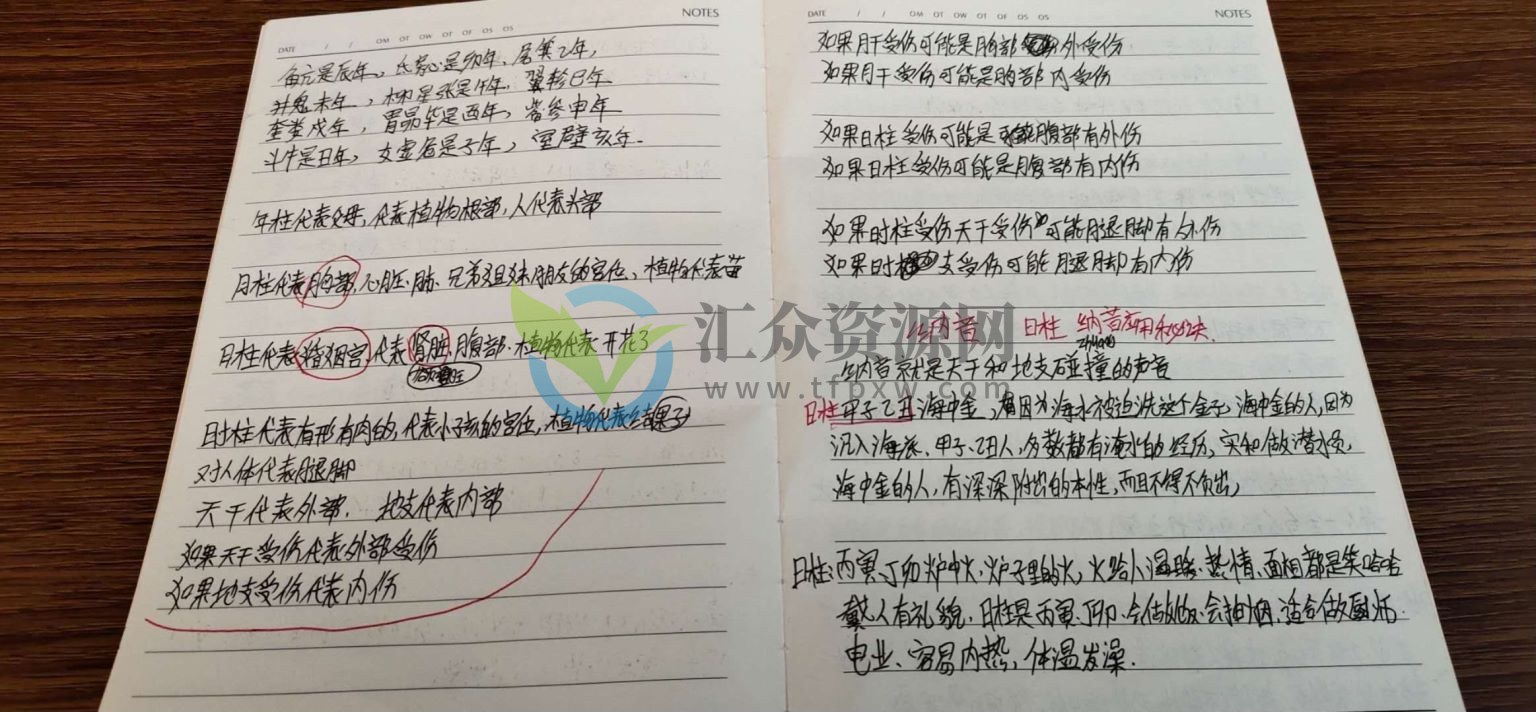 NOTES
DATE / / OM OT OW OT OF OS OS
角亢是辰年,氐房心是卯年,尾箕乙年,
井鬼未年,柳星张是午年,翼轸巳年
奎娄戌年,胃昴毕是酉年,觜参申年
斗牛是丑年,女虚危是子年,室壁亥年.
年柱代表父母,代表植物根部,人代表头部
月柱代表胸部,心脏、肺、兄弟姐妹朋友的宫位、植物代表苗
日柱代表婚姻宫,代表肾脏,腹部.植物代表开花了
时柱代表有形有肉的,代表小孩的宫位,植物代表结果子
对人体代表腿脚
天干代表外部. 地支代表内部
如果天干受伤代表外部受伤
如果地支受伤代表内伤
DATE / / OM OT OW OT OF OS OS NOTES
如果月干受伤可能是胸部外受伤
如果月干受伤可能是胸部内受伤
如果日柱受伤可能是腹部有外伤
如果日柱受伤可能是腹部有内伤
如果时柱受伤天干受伤可能腿脚有外伤
如果时支受伤可能腿脚有内伤
纳音 日柱 纳音应用和秘诀
zhuang
纳音就是天干和地支碰撞的声音
日柱甲子乙丑海中金,因为海水被迫洗这个金子,海中金的人,因为
沉入海底、甲子、乙丑人,多数都有淹水的经历,实和做潜水员,
海中金的人,有深深附出的本性,而且不得不负出,
日柱:丙寅、丁卯炉中火,炉子里的火,火给人温暖、热情、面相都是笑哈哈
人有礼貌,日柱是丙寅、丁卯、会做饭、会抽烟,适合做厨师.
电业、容易内热,体温发澡.
汇众资源网
www.tfpxw.com